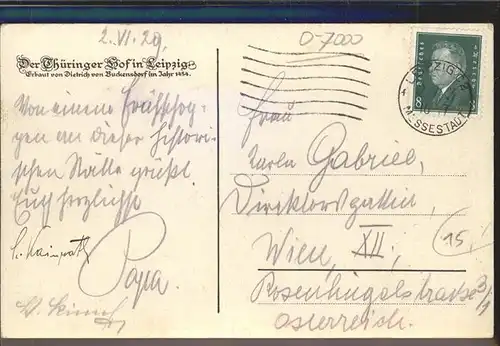 2. VI. 29.
D-7000
Der Thüringer Hof in Leipzig
Erbaut von Dietrich von Buckensdorf im Jahr 1454.
Von einem Frühschop-
pen an dieser histori-
schen Stätte grüßt
Euch herzlichst
Papa.
DEUTSCHES REICH
8
LEIPZIG
MESSESTADT
Frau
Gabriel,
Direktorsgattin,
Wien, XII.,
Rosenhügelstrasse 3/1
Österreich.
15,